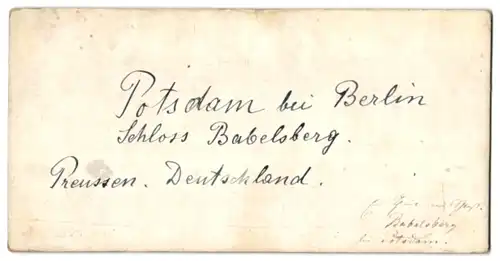 Potsdam bei Berlin
Schloss Babelsberg.
Preussen. Deutschland.
Babelsberg
bei Potsdam.